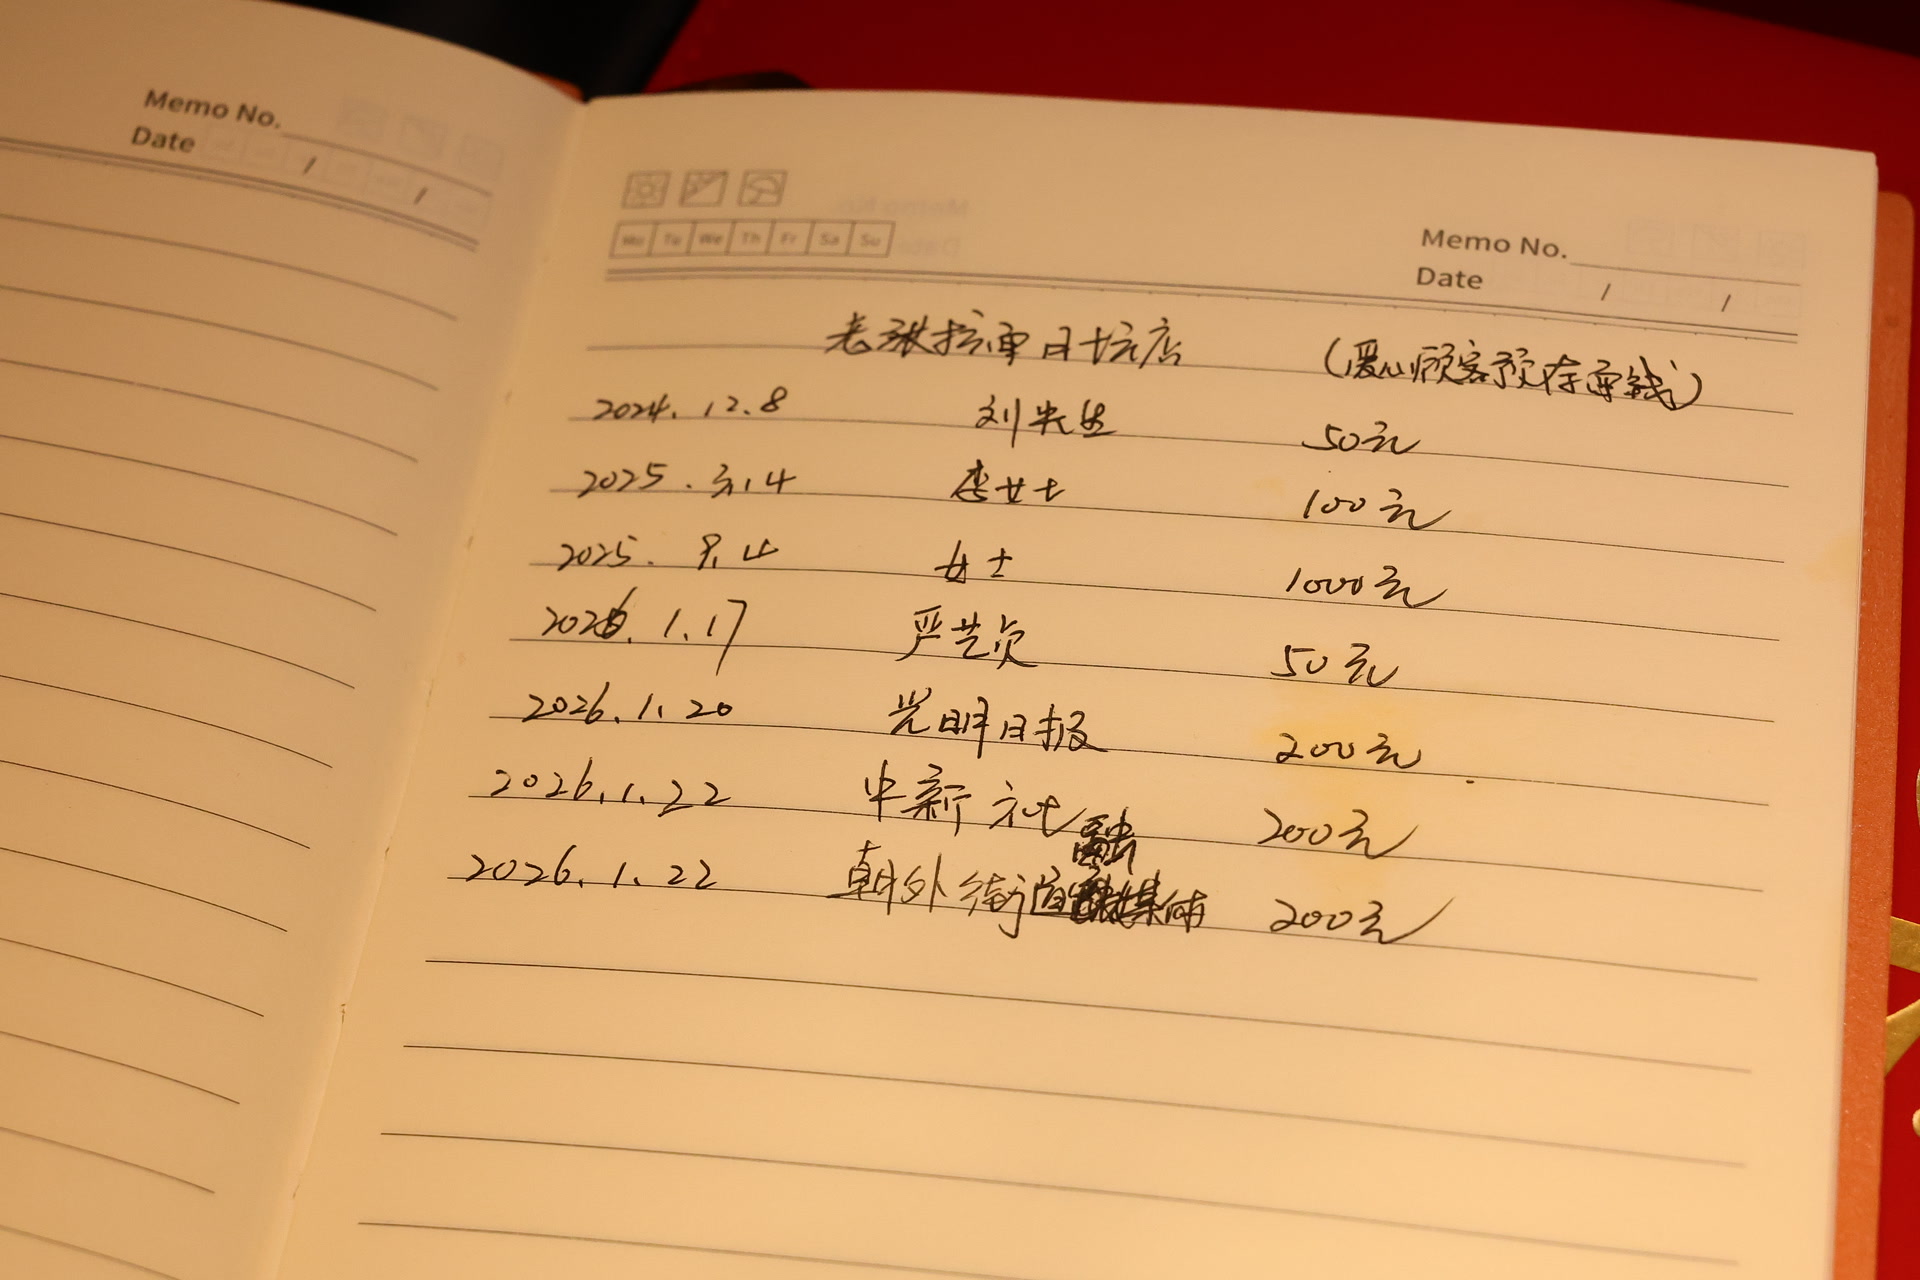 Memo No.
Date / /
Mo Tu We Th Fr Sa Su
Memo No.
Date / /
老张拉面日坛店 (爱心顾客预存面钱)
2024.12.8 刘先生 50元
2025.3.14 李女士 100元
2025.9.4 女士 1000元
2026.1.17 严艺贞 50元
2026.1.20 光明日报 200元
2026.1.22 中新社 200元
融
2026.1.22 朝外街道媒体 200元